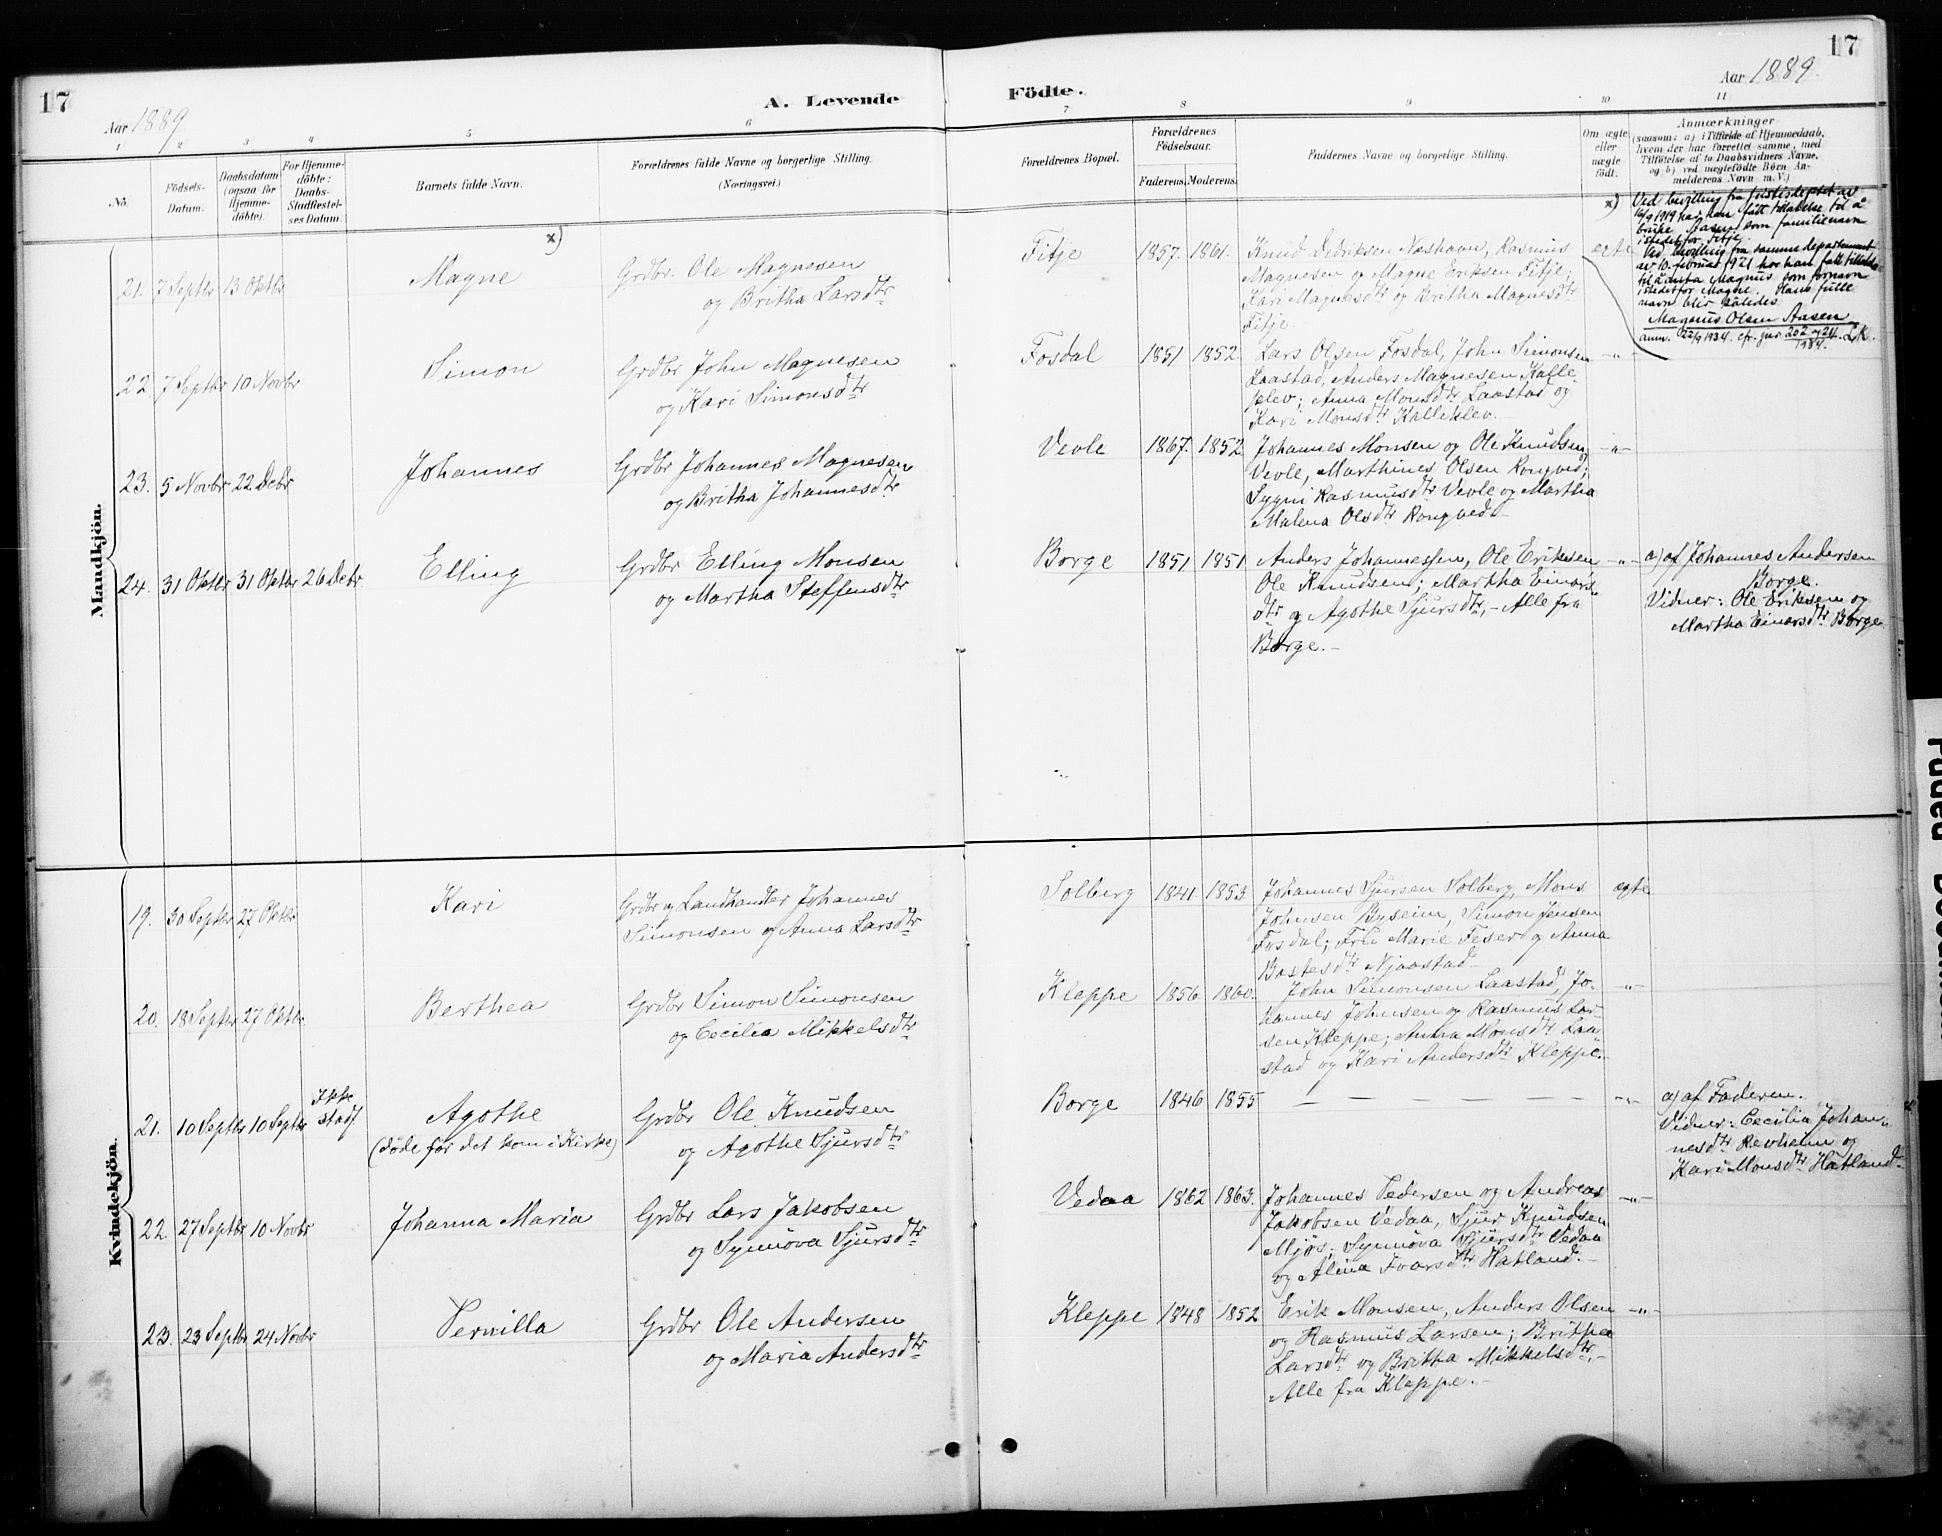 17
Aar 1889
A. Levende
Födte.
Aar 1889.
17
1 2 3 4 5 6 7 8 9 10 11
No.
Födsels-
Datum.
Daabsdatum
(ogsaa for
Hjemme-
döbte).
For Hjemme-
döbte:
Daabs-
Stadfæstel-
ses Datum.
Barnets fulde Navn.
Forældrenes fulde Navne og borgerlige Stilling.
(Næringsvei.)
Forældrenes Bopæl.
Forældrenes
Födselsaar.
Faderens. Moderens.
Faddernes Navne og borgerlige Stilling.
Om ægte
eller
uægte
födt.
Anmærkninger
(saasom: a) i Tilfælde af Hjemmedaab,
hvem der har forrettet samme, med
Tilföielse af to Daabsvidners Navne,
og b) ved uægtefödte Börn An-
melderens Navn m. V.)
Mandkjön.
21. 7 Septbr 13 Oktbr
Magne
x)
Grdbr. Ole Magnesen
og Britha Larsdtr
Fitje
1857. 1861.
Knud Didriksen Næshavn, Rasmus
Magnesen og Magne Eriksen Fitje;
Kari Magnesdtr og Britha Magnesdtr
Fitje.
ægte
x) Ved bevilling fra Justisdeptet av
16/9 1919 har han fått tillatelse til å
bruke Aasen som familienavn
istedetfor Fitje.
Ved bevilling fra samme departement
av 10. februar 1921 har han fått tillatelse
til å anta Magnus som fornavn
istedetfor Magne. Hans fulle
navn blir således
Magnus Olsen Aasen
anm. 22/9 1934. cfr. jnr 202 og 211/1934. LK.
22. 7 Septbr 10 Novbr
Simon
Grdbr John Magnesen
og Kari Simonsdtr
Fosdal
1851 1852.
Lars Olsen Fosdal, John Simonsen
Laastad, Anders Magnesen Kalle-
klev; Anna Monsdtr Laastad og
Kari Monsdtr Kalleklev.
-"-
23. 5 Novbr 22 Debr
Johannes
Grdbr Johannes Magnesen
og Britha Johannesdtr
Vevle
1867. 1852
Johannes Monsen og Ole Knudsen
Vevle, Marthines Olsen Rongved;
Sygni Rasmusdtr Vevle og Martha
Malena Olsdtr Rongved.
-"-
24. 31 Oktbr 31 Oktbr 26 Debr
Elling
Grdbr Elling Monsen
og Martha Steffensdtr
Borge
1851 1851
Anders Johannessen, Ole Eriksen
Ole Knudsen; Martha Einars-
dtr og Agothe Sjursdtr, - Alle fra
Borge.
-"-
a) af Johannes Andersen
Borge.
Vidner: Ole Eriksen og
Martha Einarsdtr Borge.
Kvindekjön.
19. 30 Septbr 27 Oktbr
Kari
Grdbr og Landhandler Johannes
Simonsen og Anna Larsdtr
Solberg
1841 1853.
Johannes Sjursen Solberg, Mons
Johnsen Byseim, Simon Jensen
Fosdal; Frk Marie Feser og Anna
Njaastad
ægte
20. 18 Septbr 27 Oktbr
Berthea
Grdbr Simon Simonsen
og Cecilia Mikkelsdtr
Kleppe
1856 1860.
John Simonsen Laastad, Jo-
hannes Johnsen og Rasmus Lar-
sen Kleppe; Anna Monsdtr Laa-
stad og Kari Andersdtr Kleppe.
-"-
21. 10 Septbr 10 Septbr
Ikke
stadf.
Agothe
(döde før det kom i Kirke)
Grdbr Ole Knudsen
og Agothe Sjursdtr
Borge
1846 1855
— — — — — —
-"-
a) af Faderen.
Vidner: Cecilia Johan-
nesdtr Revheim og
Kari Monsdtr Hatland.
22. 27 Septbr 10 Novbr
Johanna Maria
Grdbr Lars Jakobsen
og Synnøva Sjursdtr
Vedaa
1862 1863.
Johannes Pedersen og Andreas
Jakobsen Vedaa, Sjur Knudsen
Mjøs; Synnøva Sjursdtr Vedaa
og Alina Ivarsdtr Hatland.
-"-
23. 23 Septbr 24 Novbr
Pernilla
Grdbr Ole Andersen
og Maria Andersdtr
Kleppe
1848 1852
Erik Monsen, Anders Olsen
og Rasmus Larsen; Britha
Larsdtr og Britha Mikkelsdtr,-
Alle fra Kleppe.
-"-